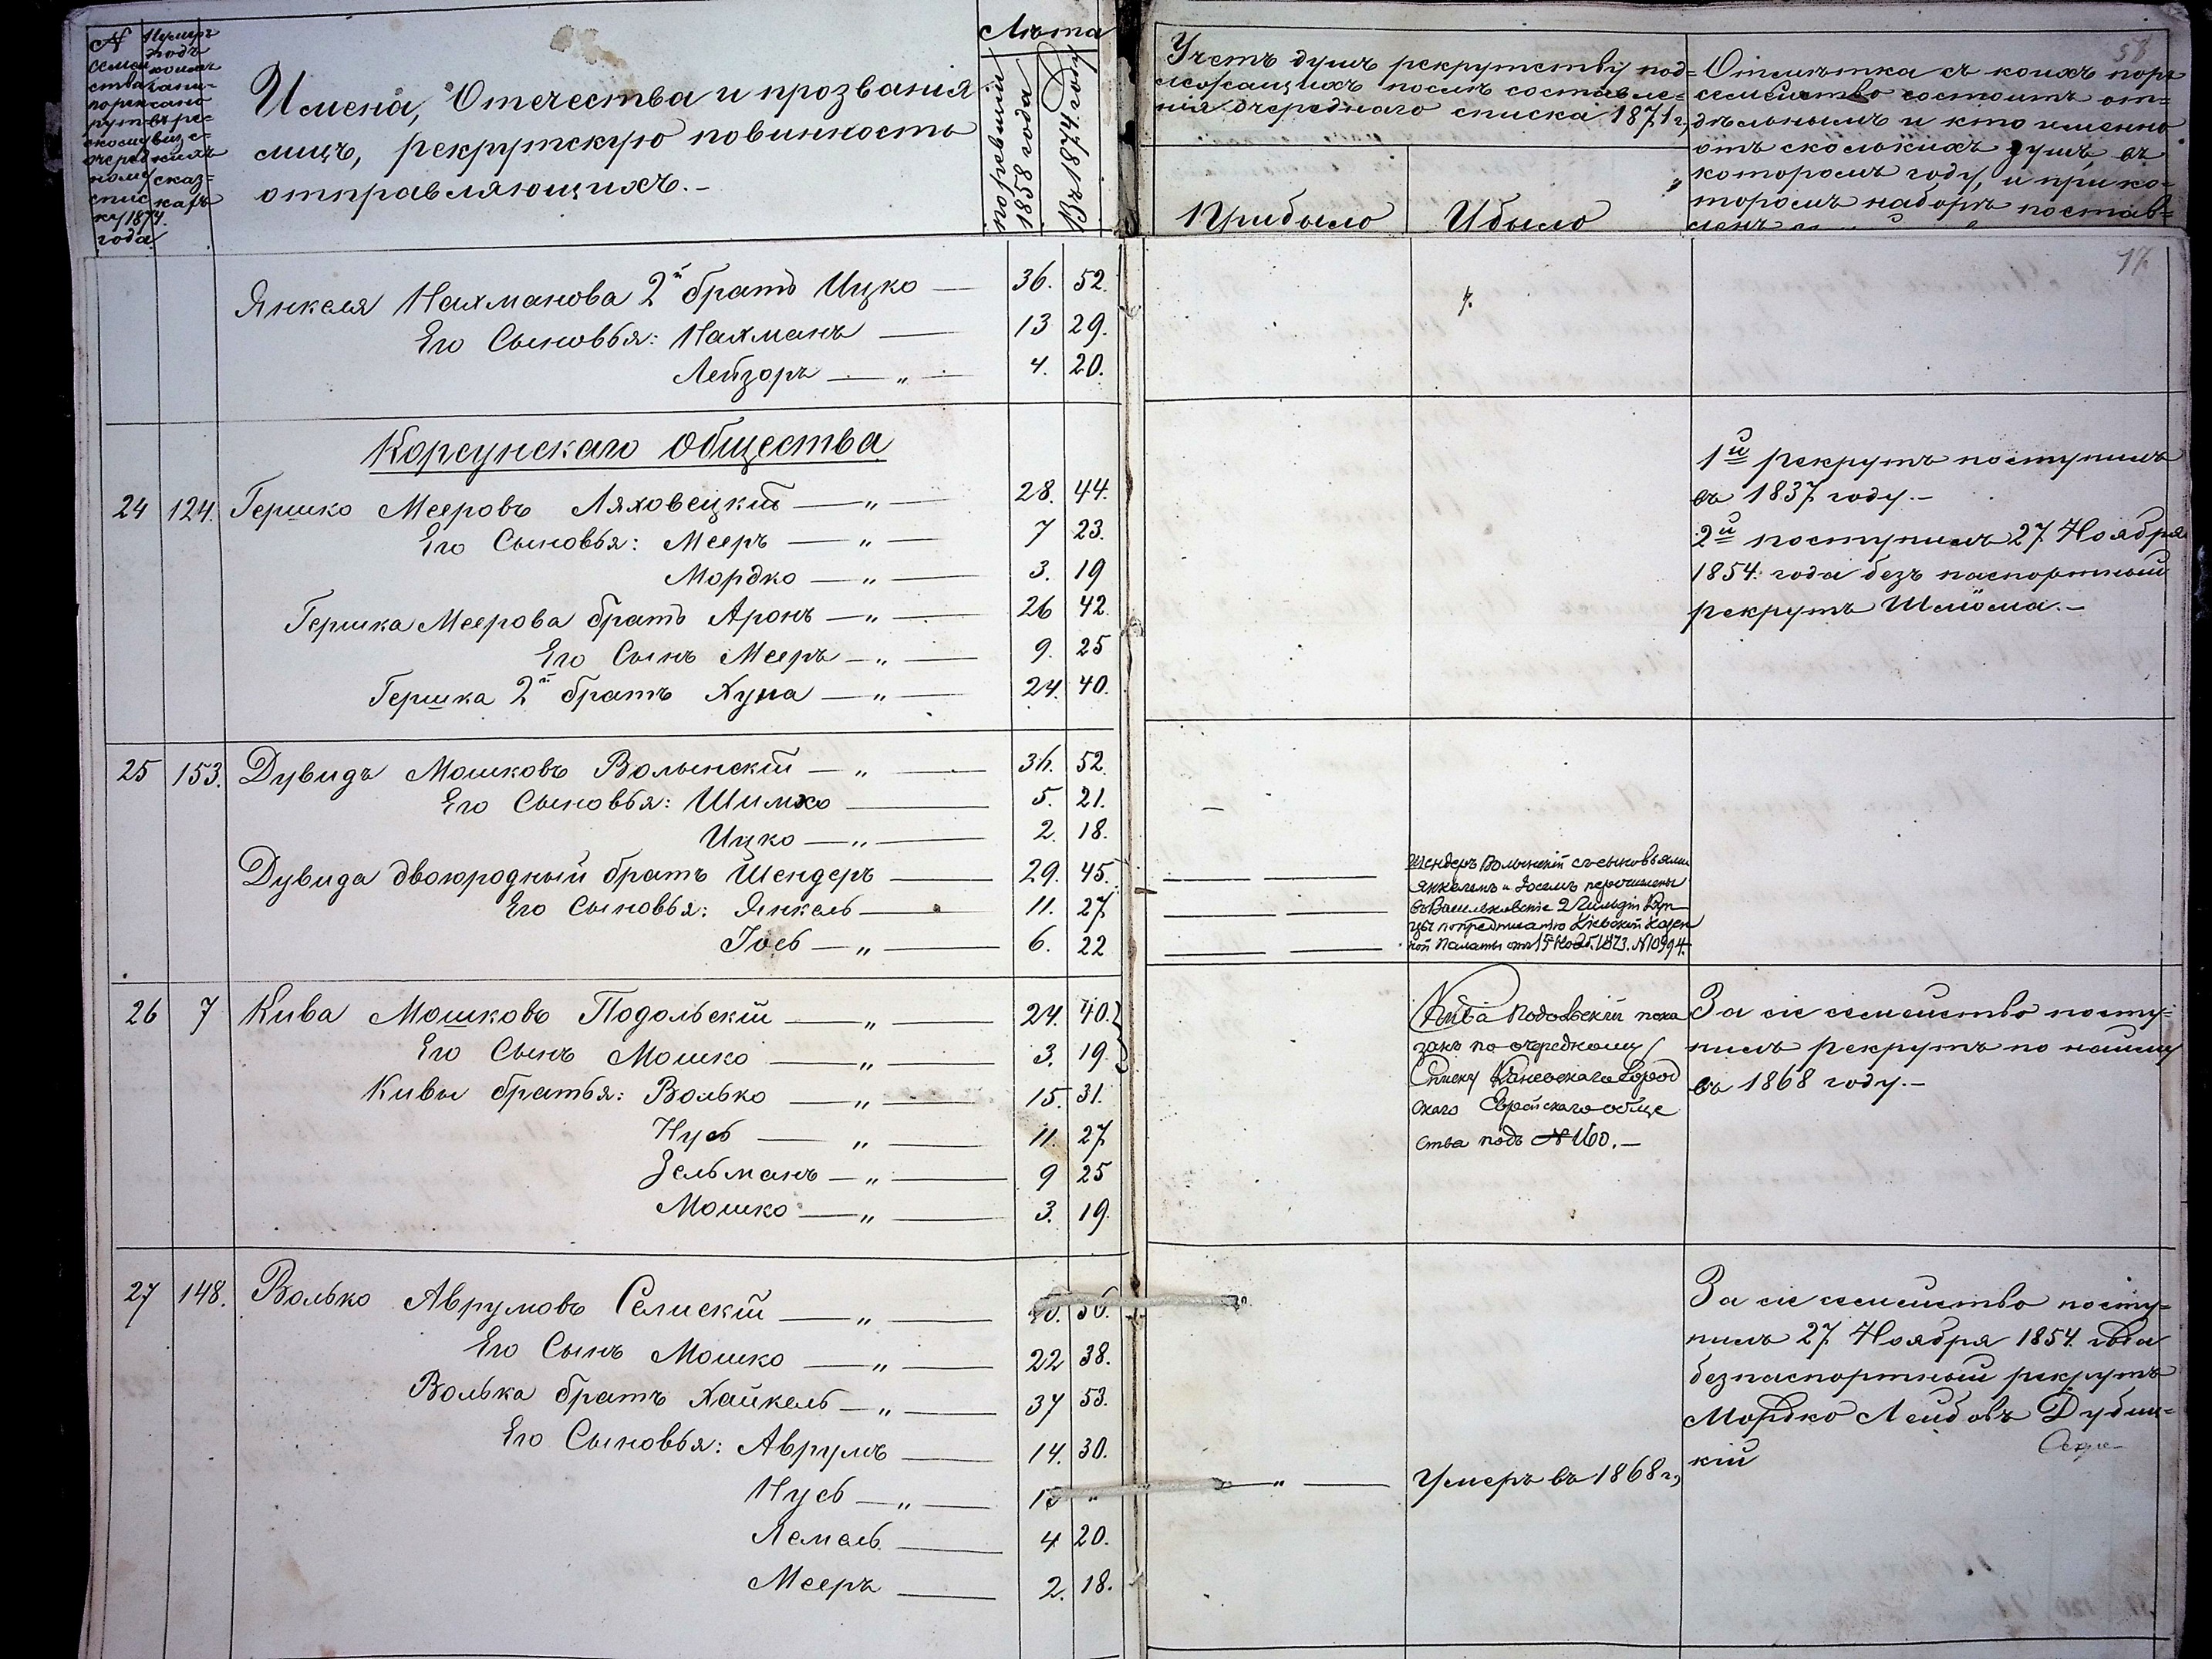 N семей
ства
по рек
рутс
кому
очеред
ному
спис
ку 1874
года
Нумеръ
подъ
коимъ
запи
сано
въ ре
виз
скихъ
сказ=
кахъ
Имена, Отечества и прозванія
лицъ, рекрутскую повинность
отправляющихъ.-
Лѣта
по ревизіи
1858 года
Въ 1874 году
Учетъ душъ рекрутству под=
лежащихъ послѣ составле=
нія очереднаго списка 1871 г,
Прибыло
Убыло
Отмѣтка съ коихъ поръ
семейство состоитъ от=
дѣльнымъ и кто именно
отъ сколькихъ душъ въ
которомъ году, и при ко=
торомъ наборѣ постав=
ленъ
58
17
Янкеля Нахманова 2й братъ Ицко — 36. 52.
Его Сыновья: Нахманъ — 13 29.
Лейзоръ — „ — 4. 20.
Корсунскаго Общества
24 124. Гершко Мееровъ Ляховецкій — „ — 28. 44.
Его Сыновья: Мееръ — „ — 7 23.
Мордко — „ — 3. 19
Гершка Меерова братъ Аронъ — „ — 26 42.
Его Сынъ Мееръ — „ — 9. 25
Гершка 2й братъ Хуна — „ — 24. 40.
1й рекрутъ поступилъ
въ 1837 году.-
2й поступилъ 27 Ноября
1854 года безъ паспортный
рекрутъ Шлёма.-
25 153. Дувидъ Мошковъ Волынскій — „ — 36. 52.
Его Сыновья: Шимко — 5. 21.
Ицко — „ — 2. 18.
Дувида двоюродный братъ Шендеръ — 29. 45.
Его Сыновья: Янкель — 11. 27
Іось — „ — 6. 22
Шендеръ Волынскій съ сыновьями
Янкелемъ и Іосемъ перечислены
въ Васильковскіе 2 Гильдіи Куп-
цы по предписанію Кіевской Казен
ной Палаты отъ 15 1873. N 10994.
26 7 Кива Мошковъ Подольскій — „ — 24. 40.
Его Сынъ Мошко — „ — 3. 19.
Кивы братья: Волько — „ — 15. 31.
Нусь — „ — 11. 27
Зельманъ — „ — 9 25
Мошко — „ — 3. 19.
Кива Подольскій пока
занъ по очередному
Списку Каневскаго Город
скаго Еврейскаго обще
ства подъ N 160.-
За сіе семейство посту=
пилъ рекрутъ по найму
въ 1868 году.-
27 148. Волько Аврумовъ Селискій — „ — 40. 56.
Его Сынъ Мошко — „ — 22 38.
Волька братъ Хайкель — „ — 37 53.
Его Сыновья: Аврумъ — 14. 30.
Нусь — „ — 13 „
Лемель — 4 20.
Мееръ — 2. 18.
— „ — Умеръ въ 1868 г,
За сіе семейство посту=
пилъ 27 Ноября 1854 года
безпаспортный рекрутъ
Мордко Лейбовъ Дубин=
кій